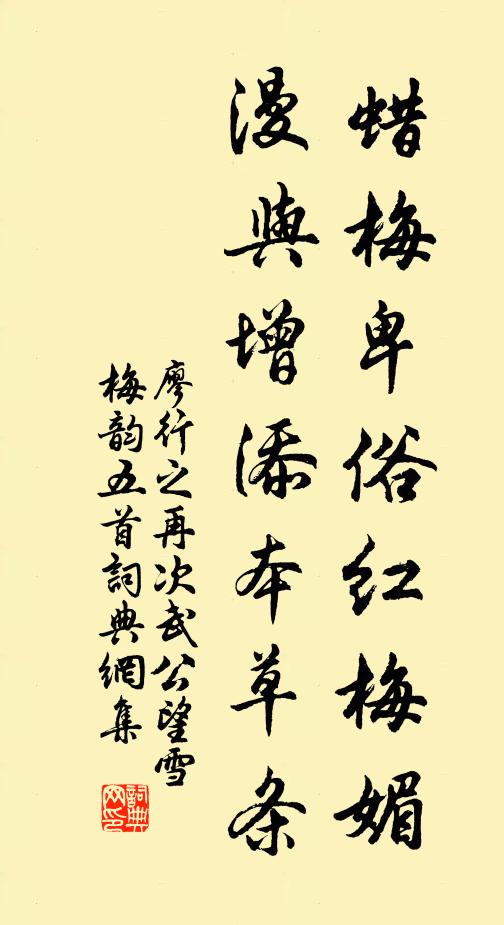 蜡梅卑俗红梅媚
漫與增添本草条
廖行之再次武公望雪
梅韵五首詞典網集
詞典网印